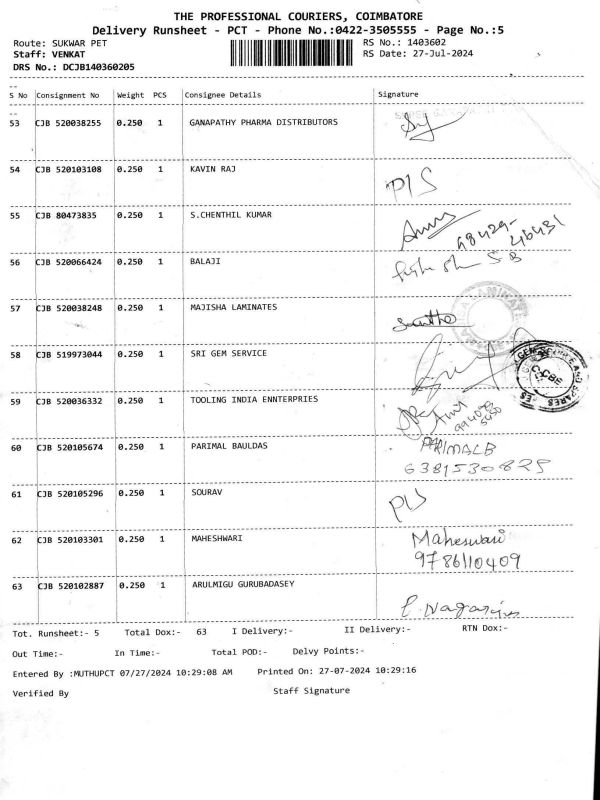 THE PROFESSIONAL COURIERS, COIMBATORE
Delivery Runsheet - PCT - Phone No.:0422-3505555 - Page No.:5
Route: SUKWAR PET RS No.: 1403602
Staff: VENKAT RS Date: 27-Jul-2024
DRS No.: DCJB140360205
S No Consignment No Weight PCS Consignee Details Signature
53 CJB 520038255 0.250 1 GANAPATHY PHARMA DISTRIBUTORS
54 CJB 520103108 0.250 1 KAVIN RAJ
PIS
55 CJB 80473835 0.250 1 S.CHENTHIL KUMAR
98429-
46431
56 CJB 520066424 0.250 1 BALAJI
57 CJB 520038248 0.250 1 MAJISHA LAMINATES
58 CJB 519973044 0.250 1 SRI GEM SERVICE
59 CJB 520036332 0.250 1 TOOLING INDIA ENNTERPRIES
60 CJB 520105674 0.250 1 PARIMAL BAULDAS PARIMALB
6381530825
61 CJB 520105296 0.250 1 SOURAV
PIS
62 CJB 520103301 0.250 1 MAHESHWARI Maheswari
9786110409
63 CJB 520102887 0.250 1 ARULMIGU GURUBADASEY
Tot. Runsheet:- 5 Total Dox:- 63 I Delivery:- II Delivery:- RTN Dox:-
Out Time:- In Time:- Total POD:- Delvy Points:-
Entered By :MUTHUPCT 07/27/2024 10:29:08 AM Printed On: 27-07-2024 10:29:16
Verified By Staff Signature